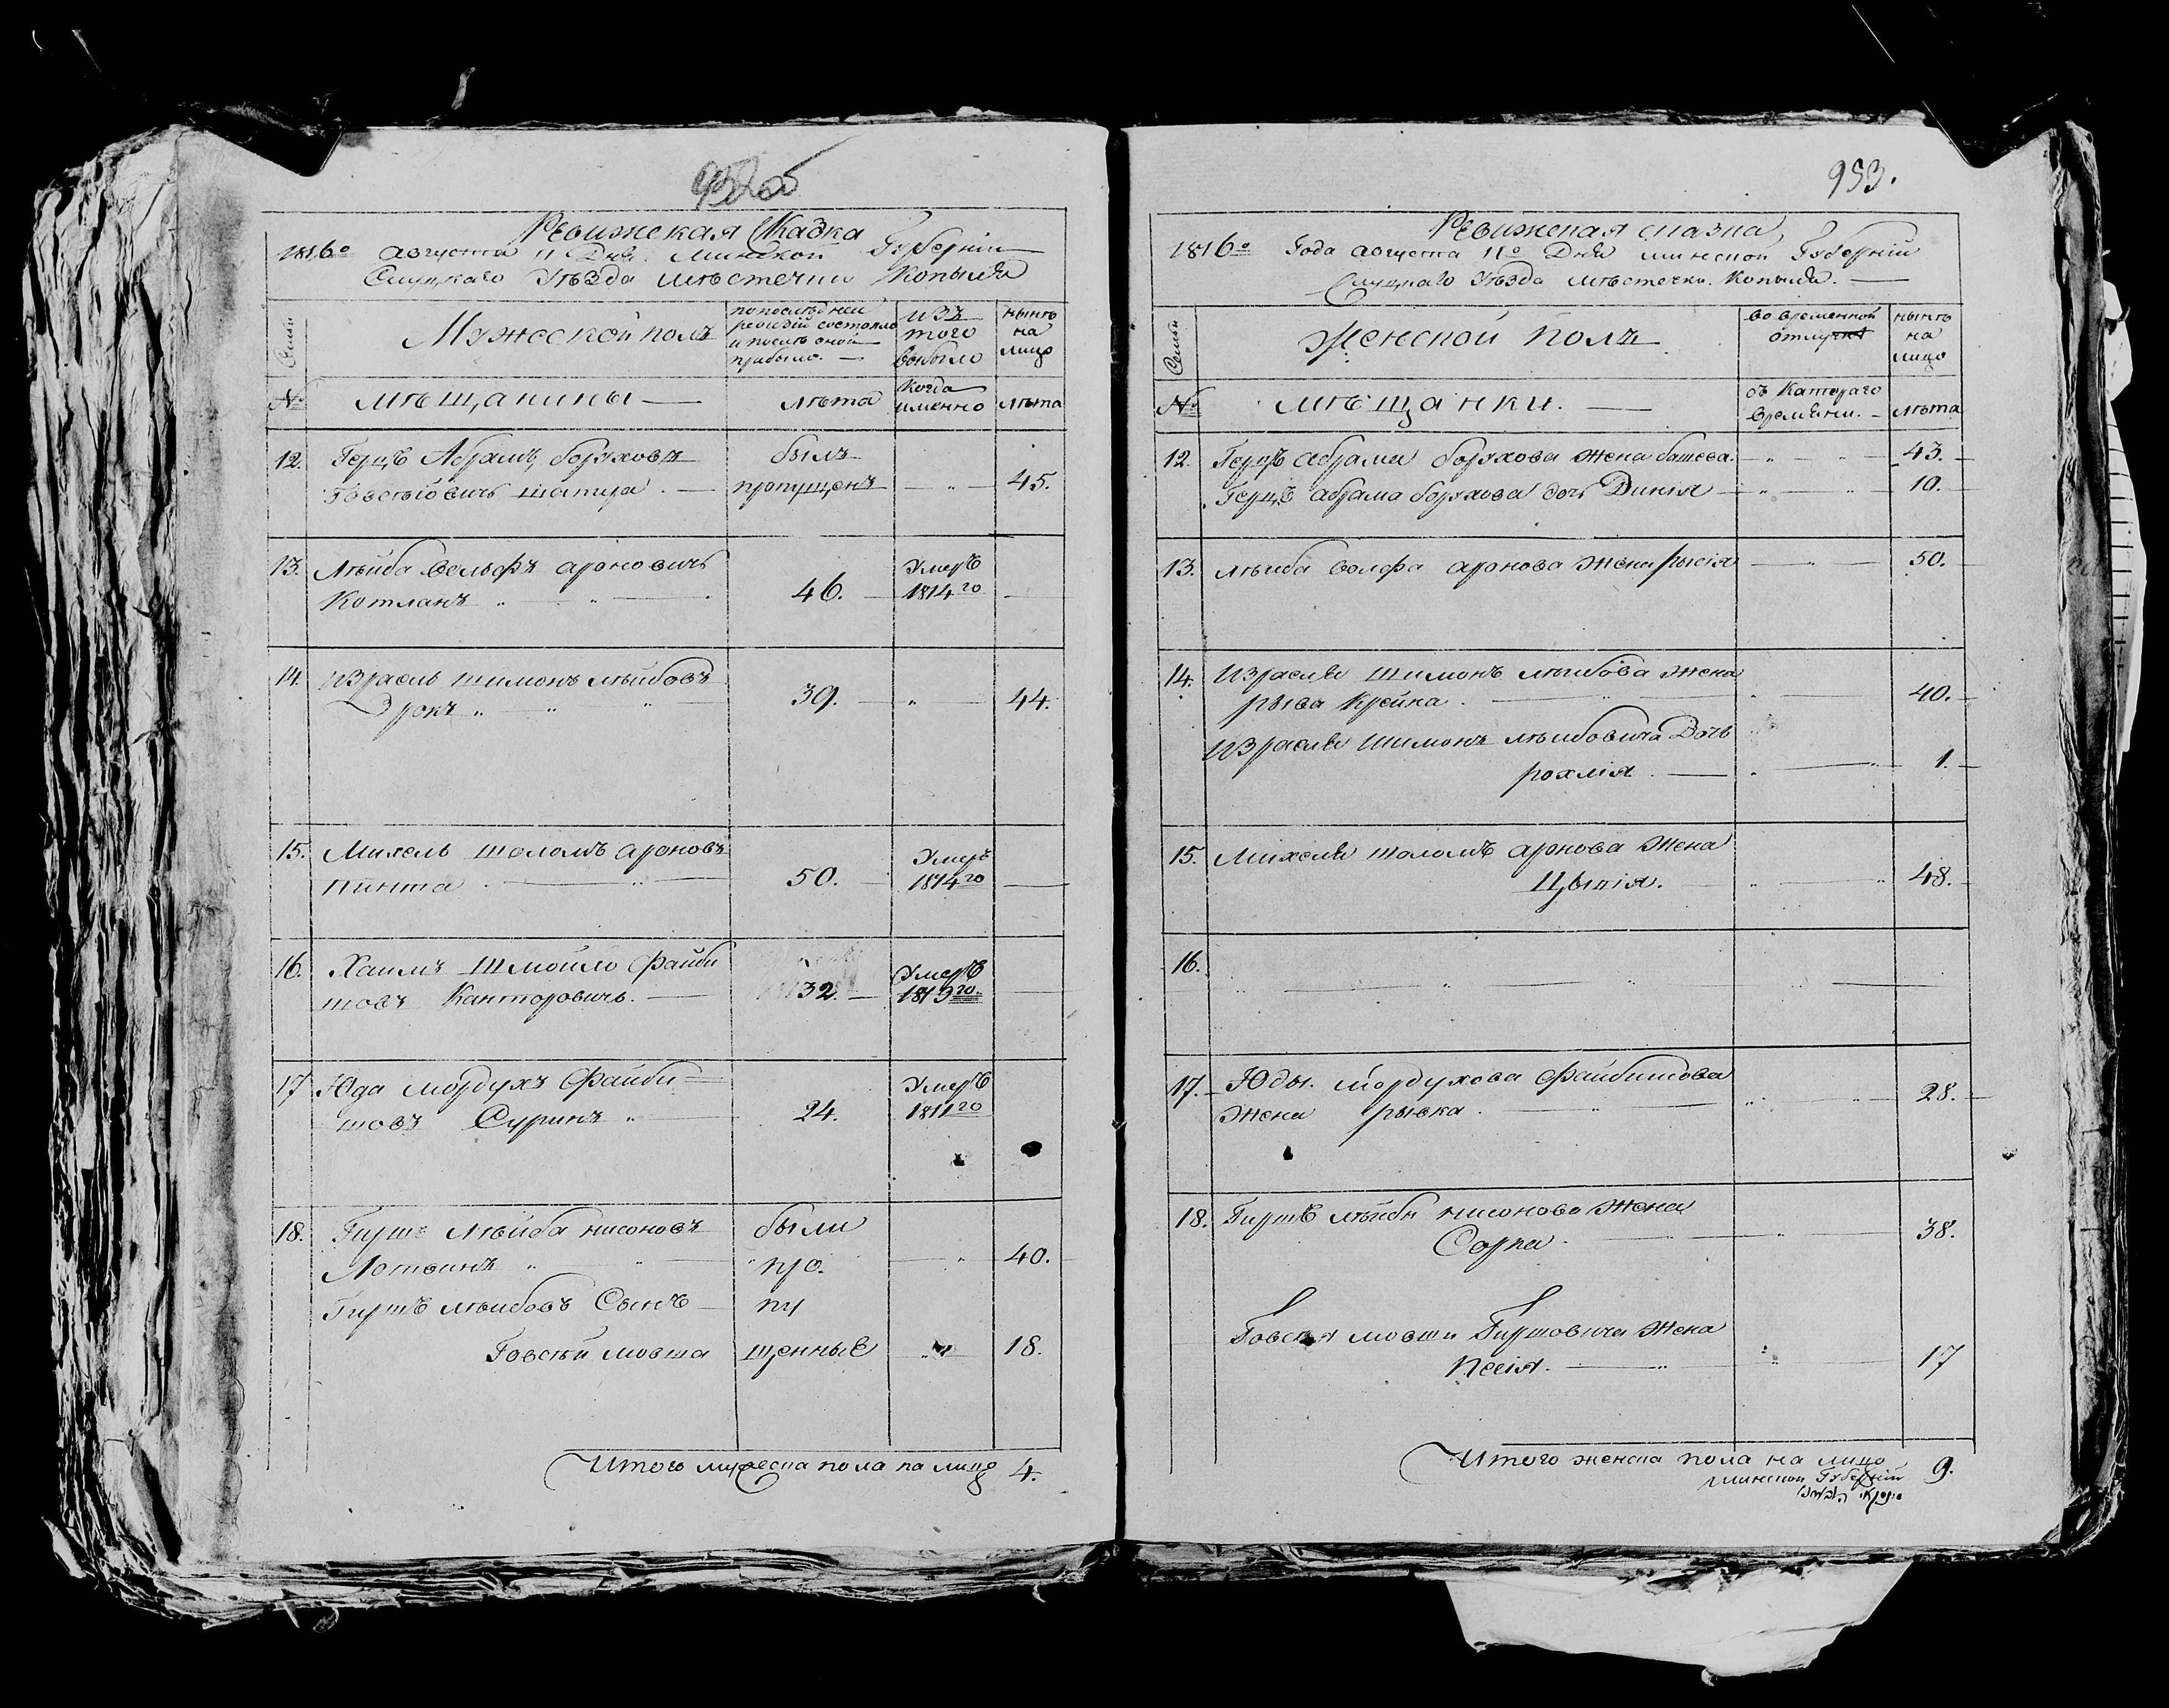 952об
Ревижская Сказка
1816го августа 11 Дня Минской Губернiи
Слуцкаго Уѣзда мѣстечки Копыля
Семьи
Мужеской полъ
по последней ревизiи состояло и после оной прибыло.
Изъ того выбыло
нынѣ на лицо
№
мѣщанины
лѣта
когда именно
лѣта
12. Герцъ Абрамъ боруховъ былъ
Говсѣiовичъ шапира. пропущенъ 45.
13. Лѣйба Вельфъ ароновичъ Умеръ
Котланъ 46. 1814го
14. Израель шимонъ лѣйбовъ
Эрекъ 39. 44.
15. Михель шоломъ ароновъ Умеръ
пинта 50. 1814го
16. Хаимъ Шмойло Файби Умеръ
шовъ Канторовичъ. 32. 1813го
17 Юда мордухъ Файби= Умеръ
шовъ Суринъ 24. 1811го
18. Гиршъ лѣйба нисоновъ были
Лотвинъ про. 40.
Гиршъ лѣйбовъ Сынъ пу
Говсѣй мовша щенные 18.
Итого мужеска пола на лицо 4.
953.
Ревижская сказка
1816го Года августа 11го Дня минской Губернiй
Слуцкаго Уѣзда мѣстечки. Копыля.
Семьи
Женской полъ
во временной отлучке
нынѣ на лицо
№
мѣщанки.
съ Катораго времени.
лѣта
12. Герцъ абрама борухова жена башева. 43.
Герцъ абрама борухова дочь Динiя 10.
13. лѣиба волфа аронова жена рысiя 50.
14. Израеля Шимонъ лѣибова жена
рыва Крейна. 40.
Израеля шимонъ лѣибовича Дочь
рохлiя. 1.
15. Михеля шоломъ аронова жена
Цывiя. 48.
16.
17. Юды. мордухова Файбишова 28.
жена рывка.
18. Гиршъ лѣйбы нисонова жена
Сорка. 38.
Говсѣя мовши Гиршовича жена
песiя. 17
Итого женска пола на лицо 9.
минской Губернiи